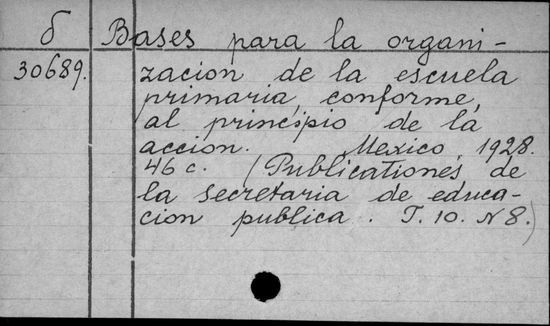 б Bases para la organi-
30689. zacion de la escuela
primaria, conforme,
al principio de la
accion. Mexico, 1928.
46 c. (Publicationes de
la secretaria de educa-
cion publica. T. 10. N 8.)